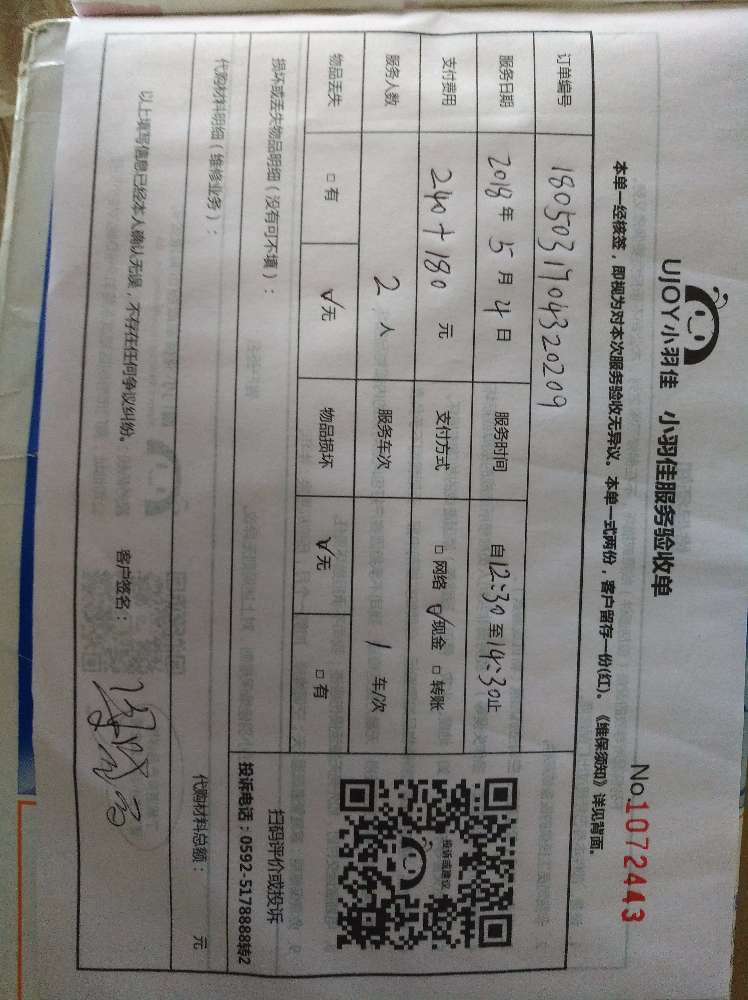 UJOY小羽佳 小羽佳服务验收单
No.1072443
本单一经核签，即视为对本次服务验收无异议。本单一式两份，客户留存一份(红)。《维保须知》详见背面。
订单编号 180503190432 0209
服务日期 2018年5月4日 服务时间 自12:30至14:30止
支付费用 240+180 元 支付方式 □网络 ☑现金 □转账
服务人数 2人 服务车次 1 车/次
物品丢失 □有 ☑无 物品损坏 ☑无 □有
投诉或建议
扫码评价或投诉
投诉电话：0592-5178888转2
损坏或丢失物品明细（没有可不填）：
代购材料明细（维修业务）： 代购材料总额： 元
以上填写信息已经本人确认无误，不存在任何争议纠纷。 客户签名：